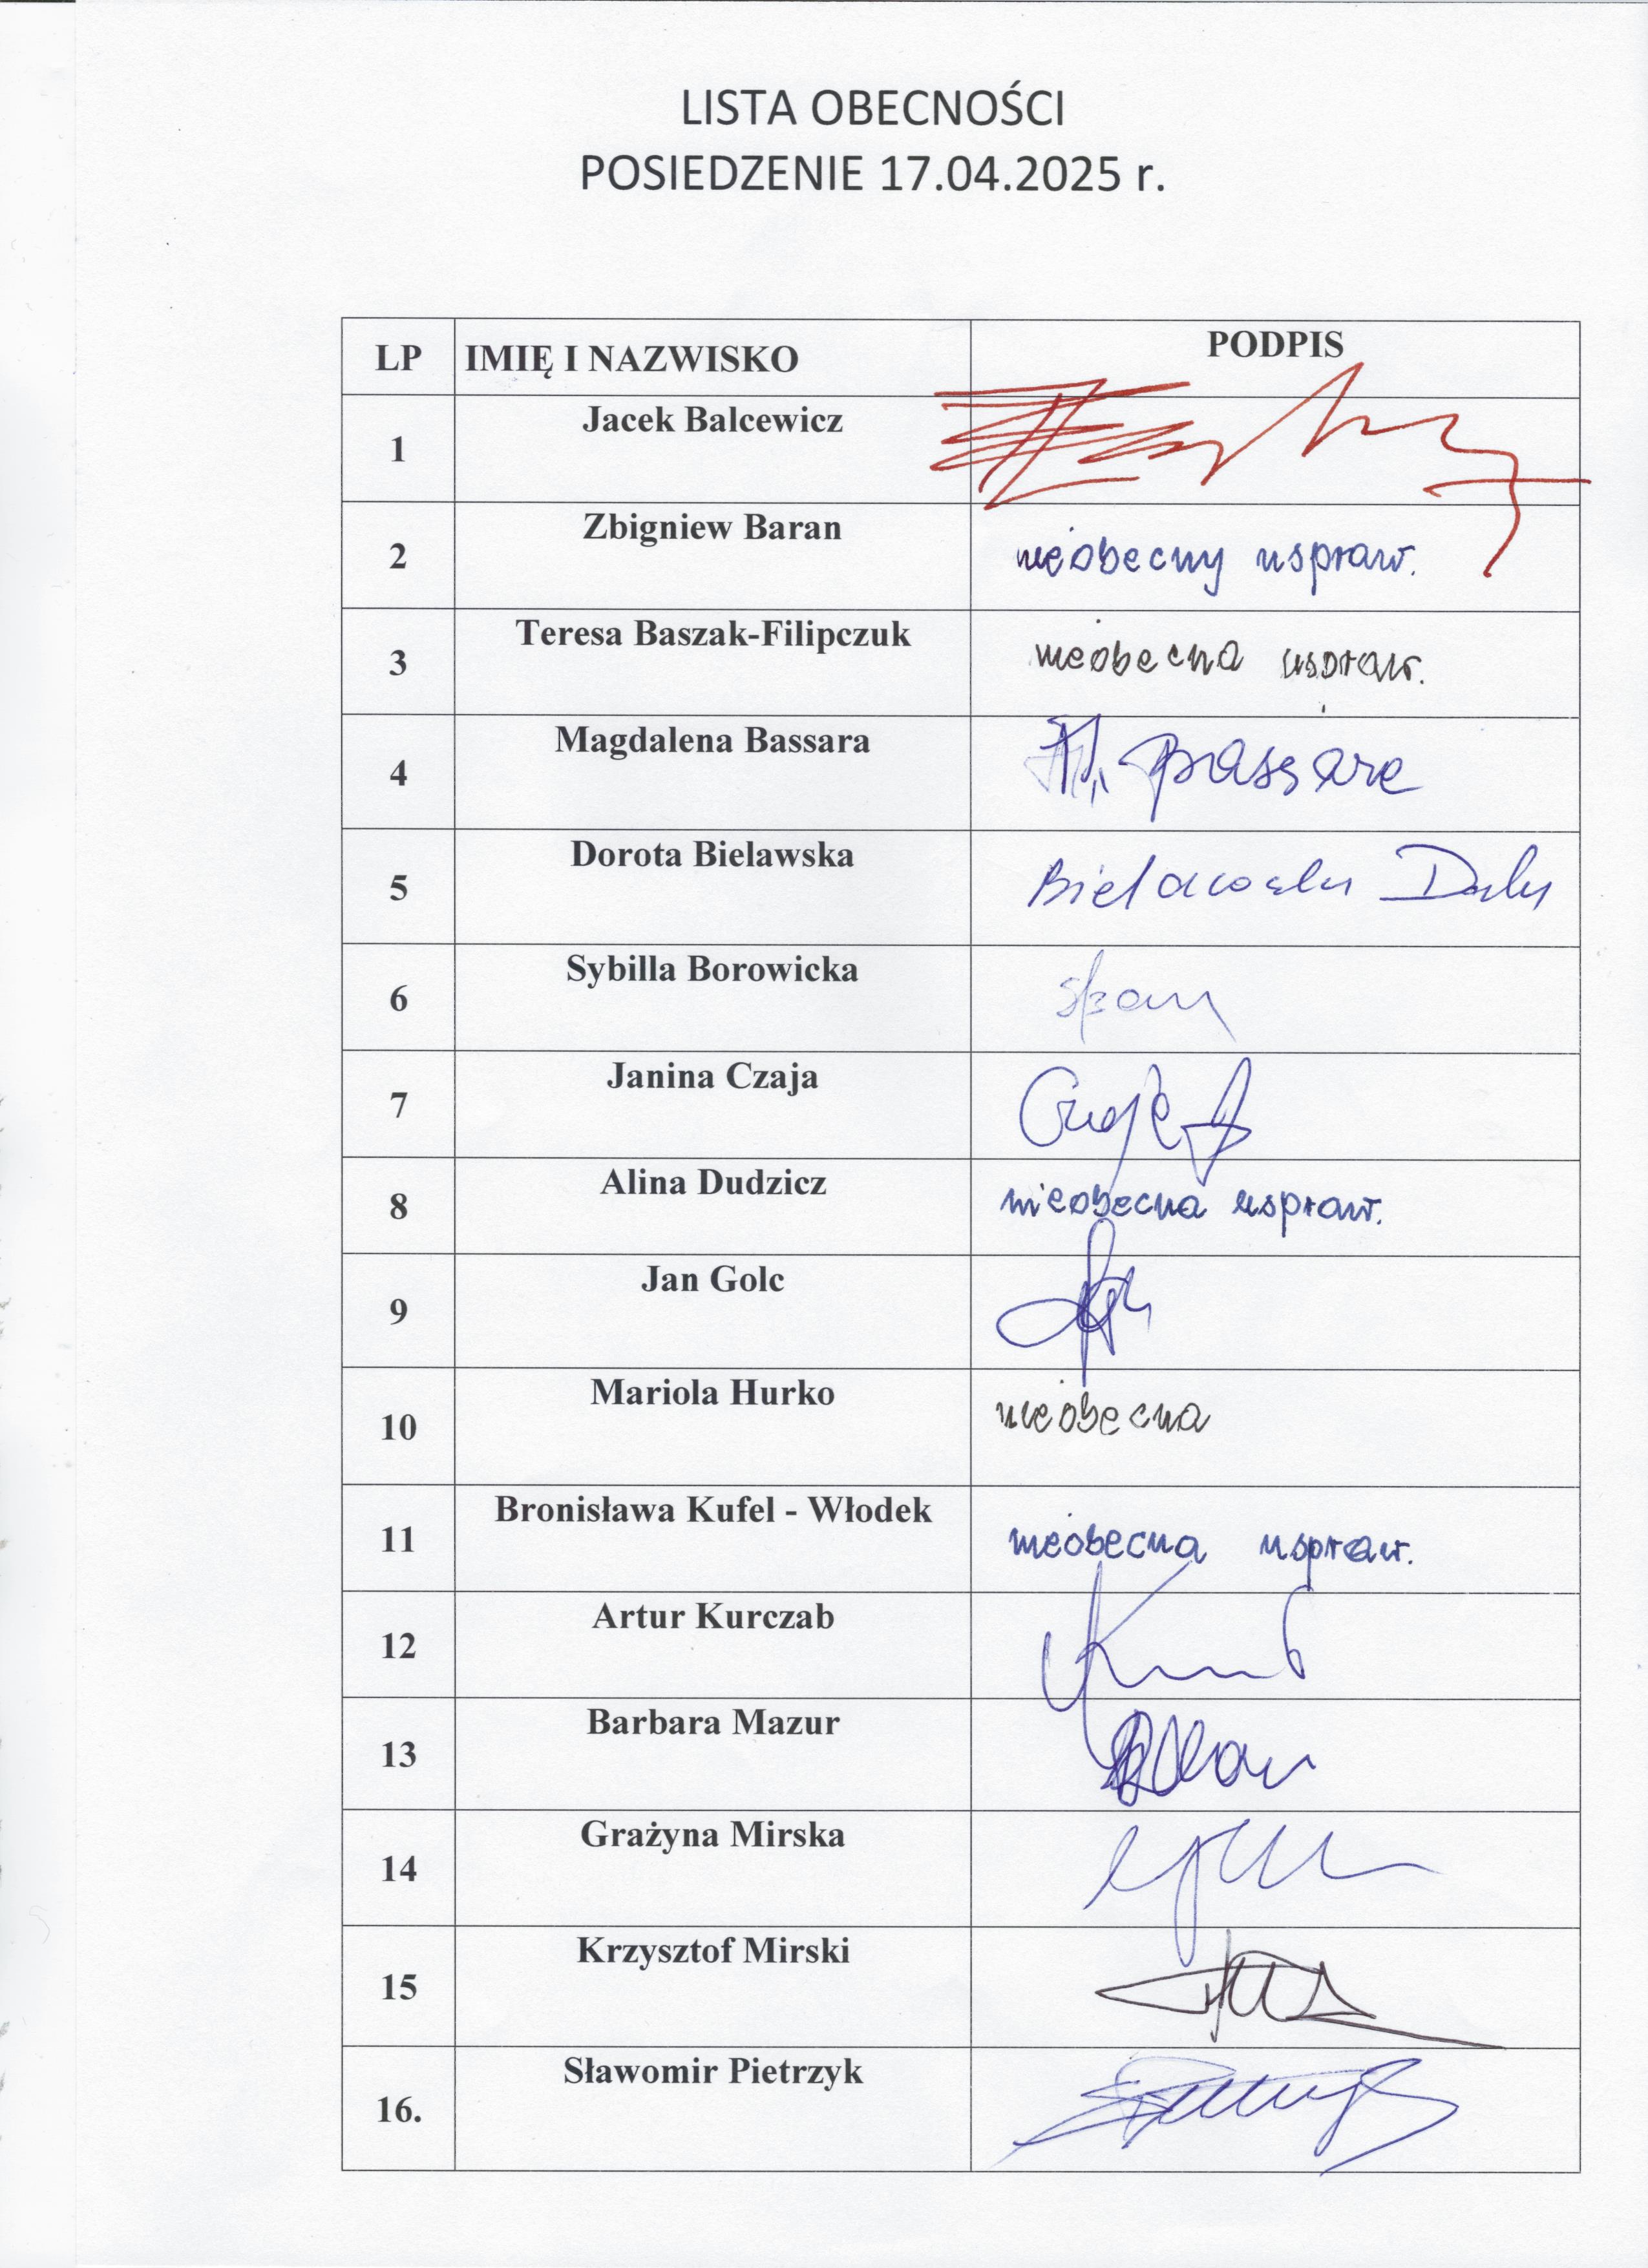 LISTA OBECNOŚCI
POSIEDZENIE 17.04.2025 r.
LP IMIĘ I NAZWISKO PODPIS
1 Jacek Balcewicz
2 Zbigniew Baran nieobecny uspraw.
3 Teresa Baszak-Filipczuk nieobecna uspraw.
4 Magdalena Bassara M. Bassara
5 Dorota Bielawska Bielawska
6 Sybilla Borowicka
7 Janina Czaja
8 Alina Dudzicz nieobecna uspraw.
9 Jan Golc
10 Mariola Hurko nieobecna
11 Bronisława Kufel - Włodek nieobecna uspraw.
12 Artur Kurczab
13 Barbara Mazur
14 Grażyna Mirska
15 Krzysztof Mirski
16. Sławomir Pietrzyk